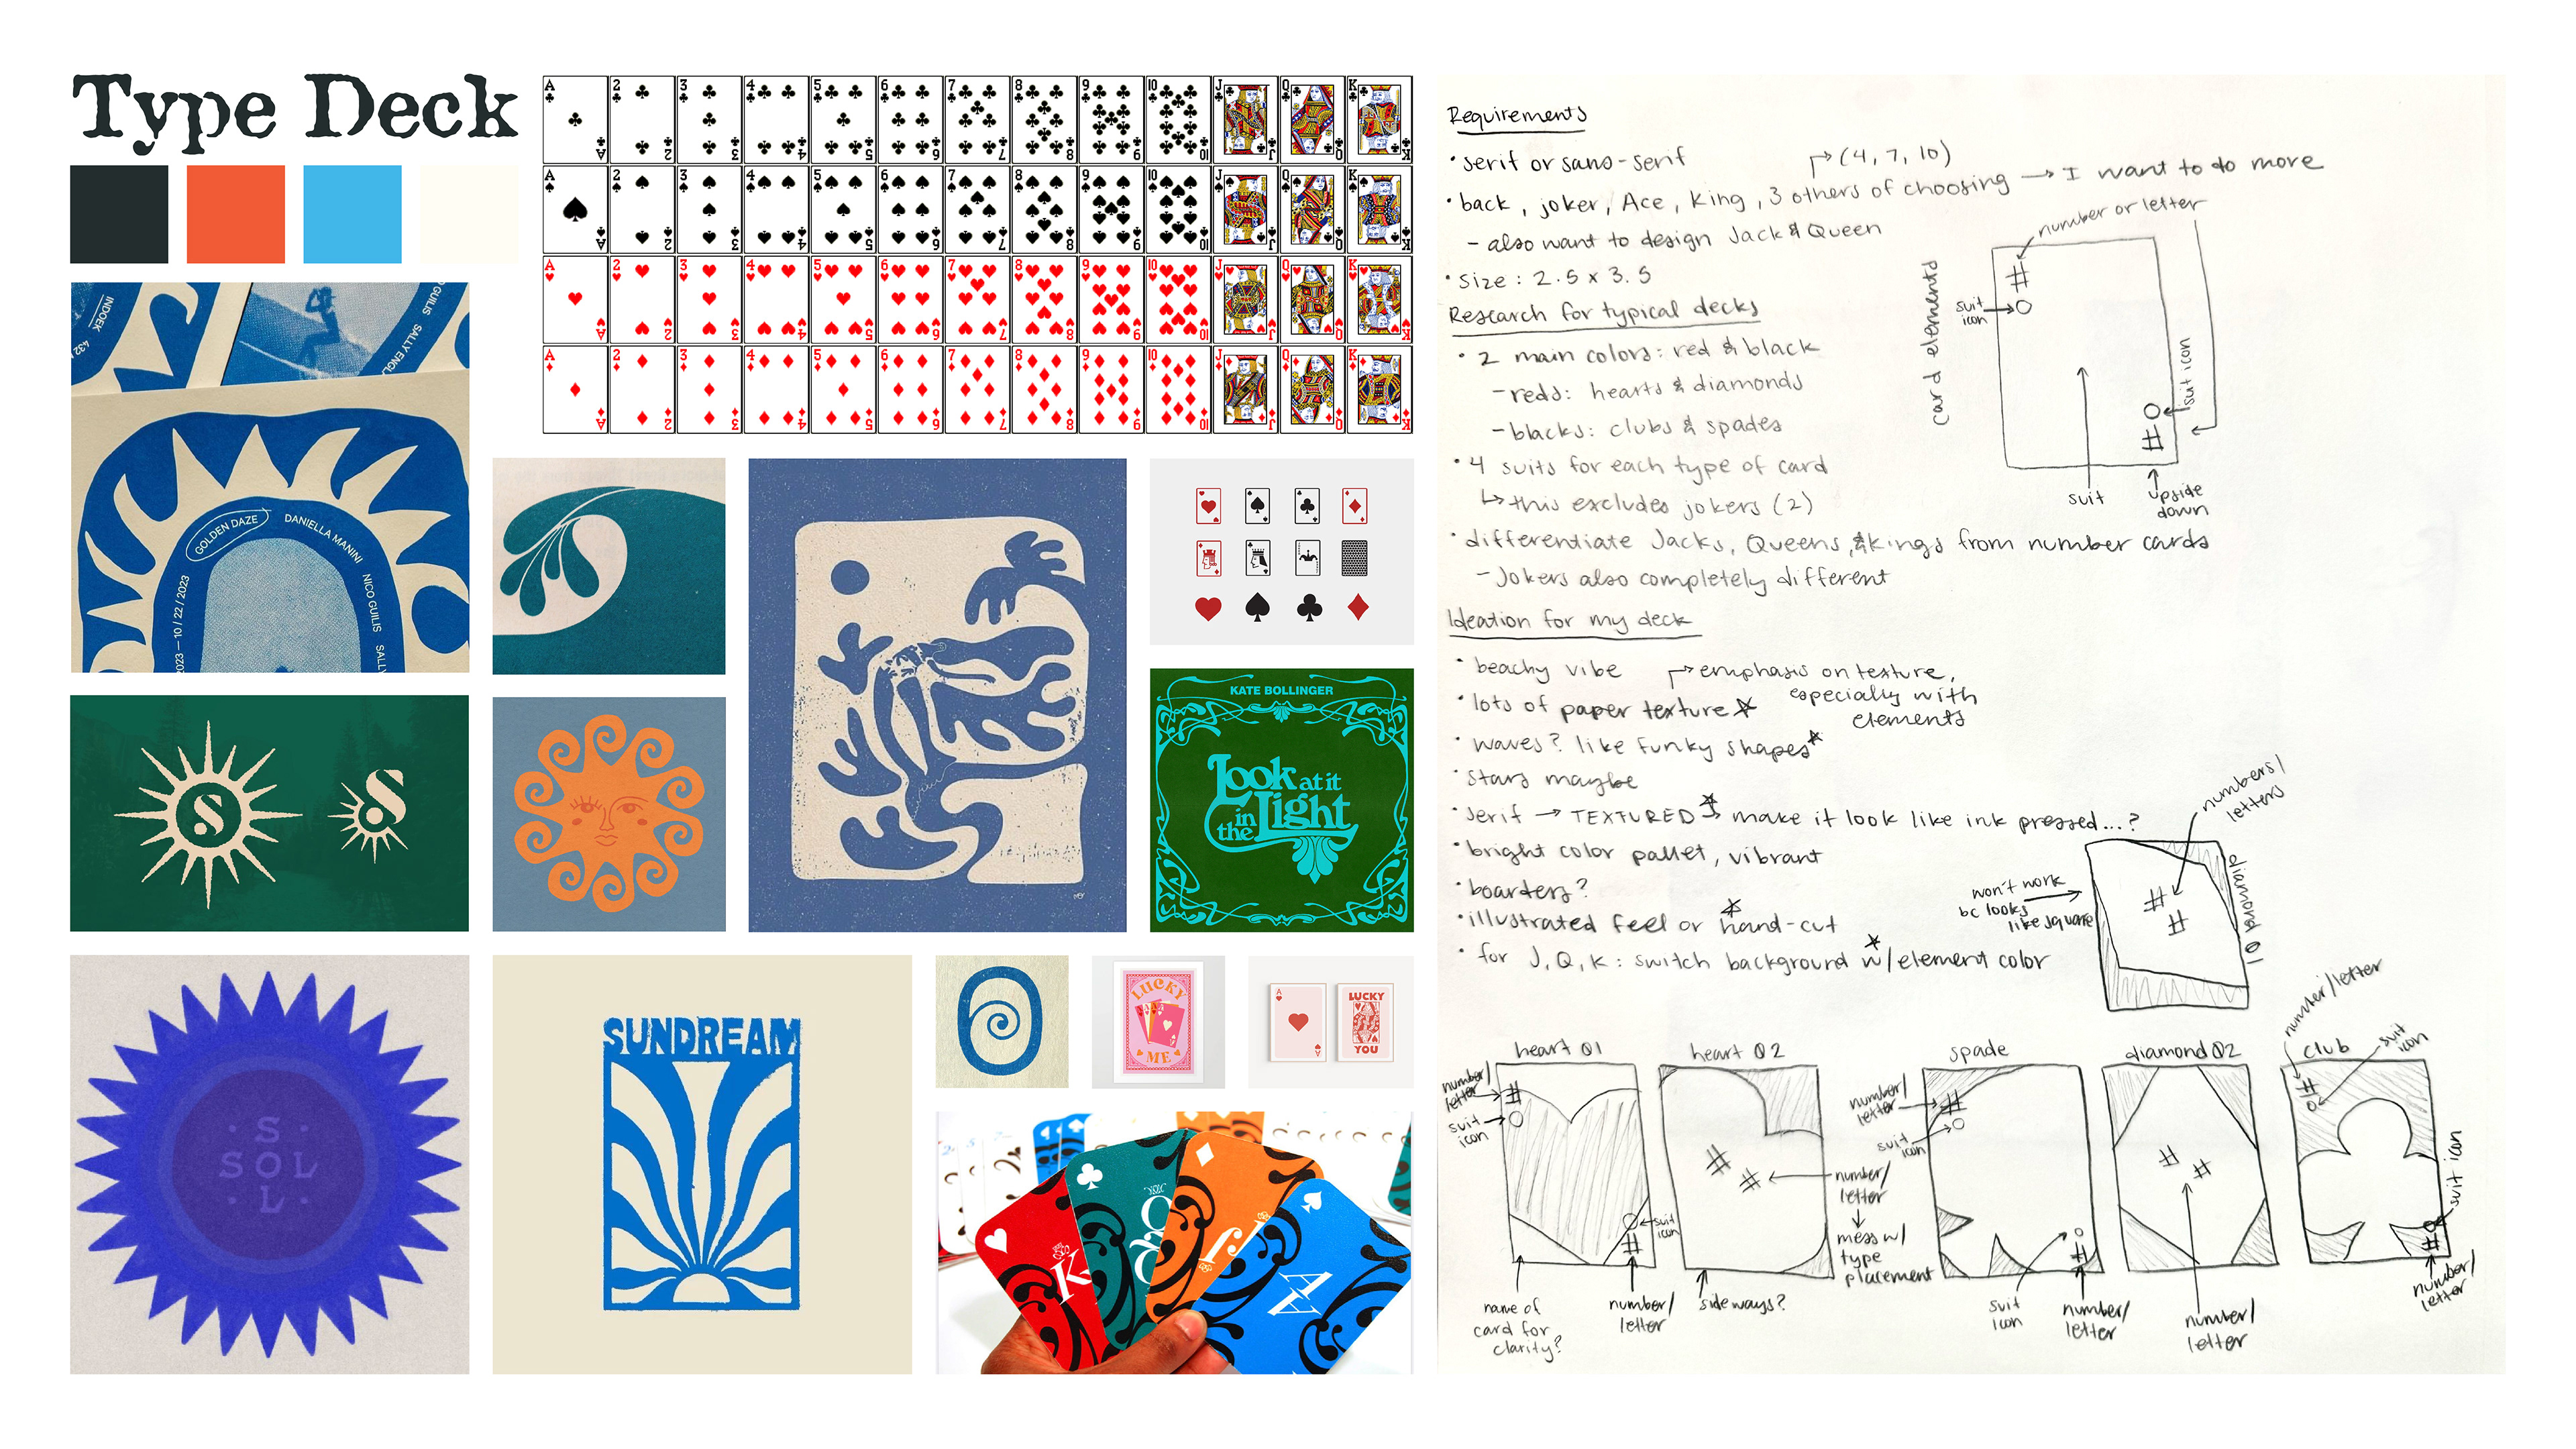 Type Deck
A 2 3 4 5 6 7 8 9 10 J Q K
A 2 3 4 5 6 7 8 9 10 J Q K
A 2 3 4 5 6 7 8 9 10 J Q K
A 2 3 4 5 6 7 8 9 10 J Q K
INDOEK
432
GUILIS SALLY ENGL
GOLDEN DAZE
DANIELLA MANINI
NICO GUILIS
SALLY
2023 — 10 / 22 / 2023
S
S
KATE BOLLINGER
Look at it
in
the Light
· S ·
SOL
· L ·
SUNDREAM
LUCKY
ME
A
A
LUCKY
YOU
K
J
A
Requirements
• serif or sans-serif
(4, 7, 10)
• back, joker, Ace, King, 3 others of choosing → I want to do more
- also want to design Jack & Queen
• size: 2.5 x 3.5
Research for typical decks
• 2 main colors: red & black
- reds: hearts & diamonds
- blacks: clubs & spades
• 4 suits for each type of card
↳ this excludes jokers (2)
• differentiate Jacks, Queens, & Kings from number cards
- Jokers also completely different
number or letter
card elements
#
suit
icon
suit icon
#
suit
upside
down
Ideation for my deck
• beachy vibe
• lots of paper texture
emphasis on texture,
especially with
elements
• waves? like funky shapes
• stars maybe
• serif → TEXTURED → make it look like ink pressed...?
• bright color pallet, vibrant
• boarders?
• illustrated feel or hand-cut
• for J, Q, K: switch background w/ element color
numbers/
letters
#
#
won't work
bc looks
like square
diamond 01
heart 01
number/
letter
#
suit
icon
suit
icon
#
name of
card for
clarity?
number/
letter
heart 02
#
#
number/
letter
mess w/
type
placement
sideways?
spade
number/
letter
#
suit
icon
#
suit
icon
number/
letter
diamond 02
#
#
number/
letter
club
number/letter
suit
icon
#
suit icon
#
number/
letter